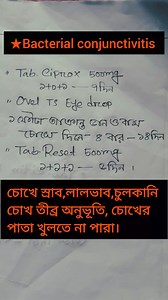 ★Bacterial conjunctivitis
• Tab Ciprox 500mg
১+০+১ — ৭দিন
• Ovel TS Eye drop
চোখে দিনে- ৪ বার - ১৪দিন
• Tab Resed 500mg
১+১+১ — ৫দিন।
চোখে স্রাব,লালভাব,চুলকানি
চোখ তীব্র অনুভূতি, চোখের
পাতা খুলতে না পারা।